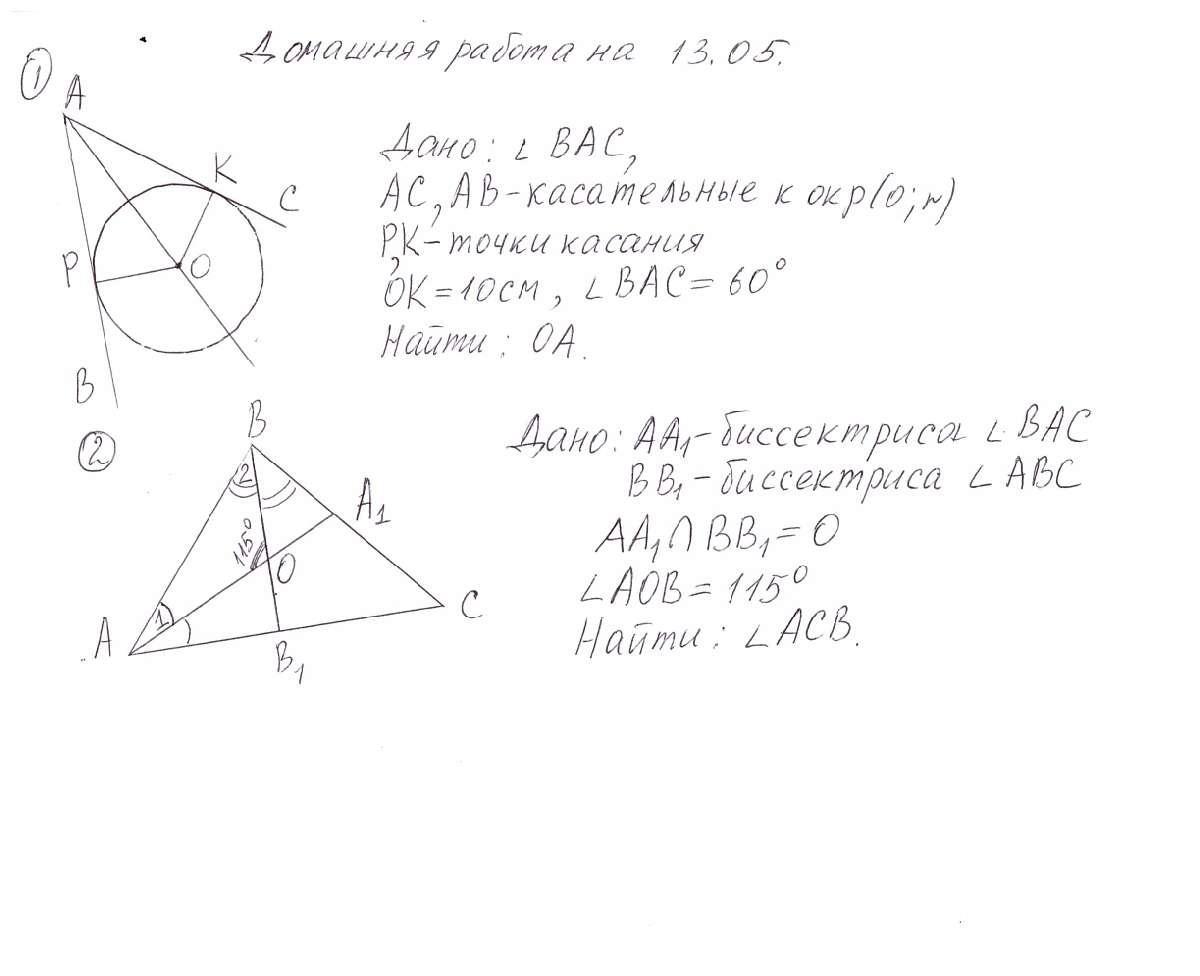 Домашняя работа на 13.05.
①
A
K
C
P
O
B
Дано: ∠ BAC,
AC, AB-касательные к окр(O;r)
P,K-точки касания
OK=10см, ∠BAC=60°
Найти: OA.
②
B
2
A₁
115°
O
1
A
C
B₁
Дано: AA₁-биссектриса ∠BAC
BB₁-биссектриса ∠ABC
AA₁∩BB₁=O
∠AOB=115°
Найти: ∠ACB.